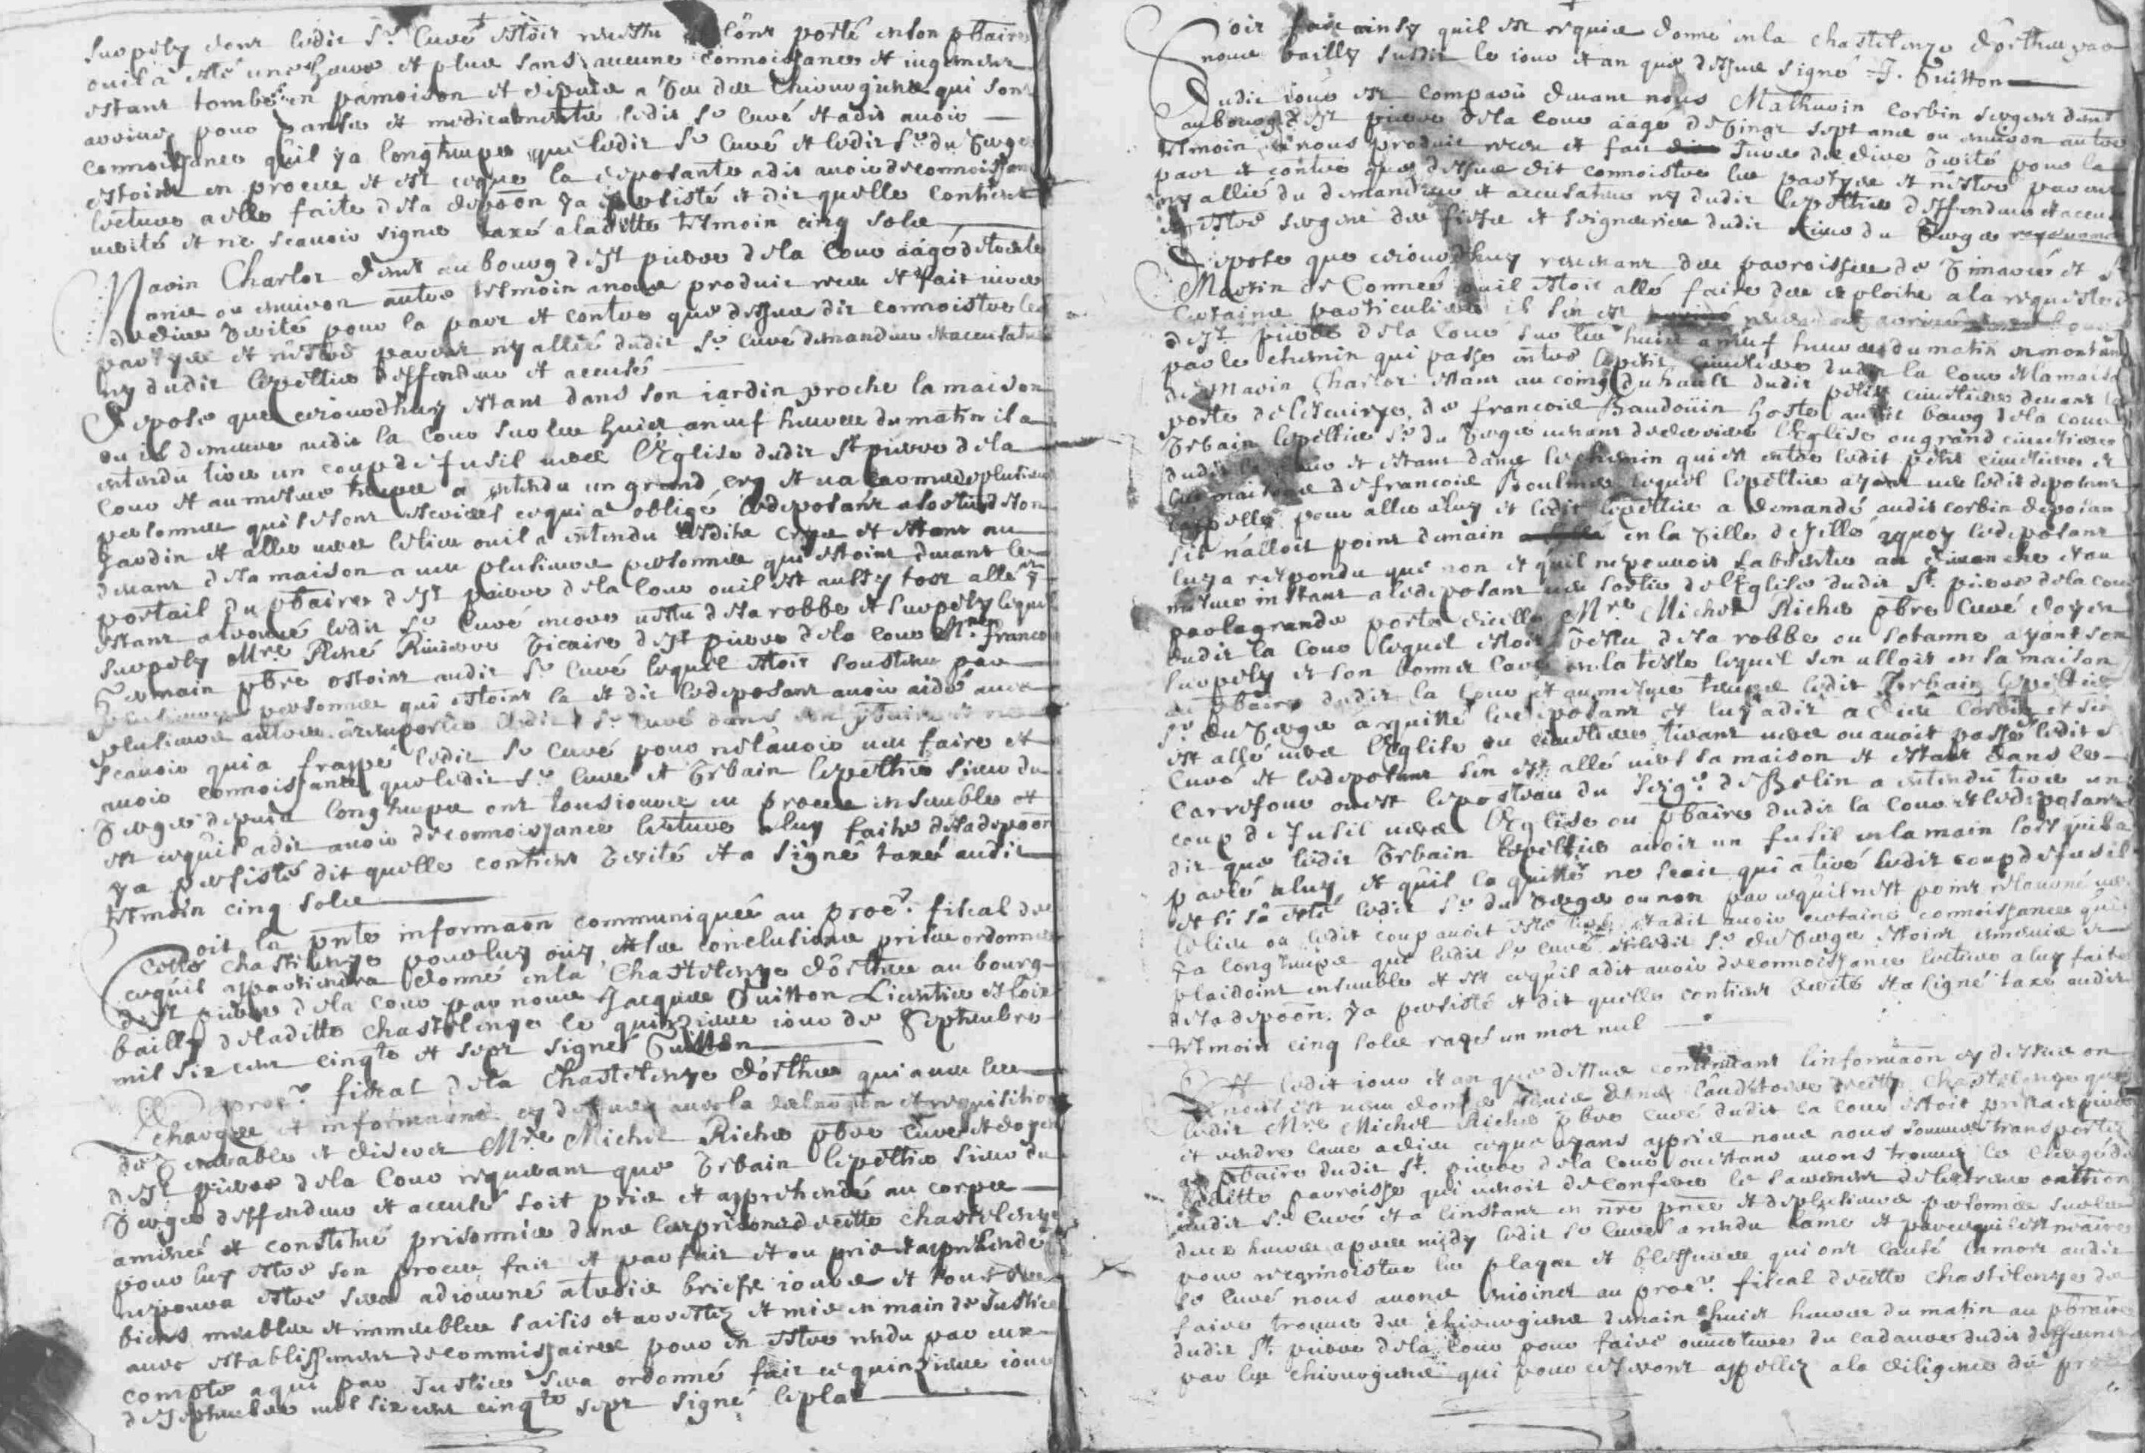 surpely dont ledit Sr. Curé estoit vestu & lont porté en son pbaire
ou il a esté une heure et plus sans aucune connoissance et jugement
estant tombé en pamoison et depuis a veu des chirurgiens qui sont
arrivez pour panser et medicamenter ledit Sr Curé et a dit avoir
connoissance quil y a longtemps que ledit Sr Curé et ledit Sr. du Verger
estoient en proces et est ce que la deposante a dit avoir de connoissance
lecture a elle faite de sa depoon y a persisté et dit quelle contient
verité et ne scavoir signer taxé a laditte tesmoin cinq solz
Marin Charlot demt au bourg de St pierre de la Cour aagé de trente
ans ou environ autre tesmoin a nous produit receu et fait jurer
de dire verité pour la part et contre que dessus dit connoistre les
partyes et nestre parent ny allié dudit Sr. Curé demandeur et accusateur
ny dudit lepeltier deffendeur et accusé
Depose que cejourdhuy estant dans son jardin proche la maison
ou il demeure audit la Cour sur les huict a neuf heures du matin il a
entendu tirer un coup de fusil vers l'Eglise dudit St pierre de la
Cour et au mesme temps a entendu un grand cry et
personnes qui ce qui a obligé le deposant a sortir de son
jardin et aller vers le lieu ou il a entendu lesdits crys et estant au
devant de sa maison a veu plusieurs personnes qui estoient devant le
portail du pbaire de St pierre de la Cour ou il est aussy tost allé &
estant a trouvé ledit Sr Curé encore vestu de sa robbe et surpely lequel
surpely Mre. René Riviere vicaire de St pierre de la Cour Mre. francois
Germain pbre estoient audit Sr. Curé lequel estoit soustenu par
plusieurs personnes qui estoient la et dit le deposant avoir aidé avec
plusieurs autres a remporter ledit Sr. Curé dans son pbaire et ne
scavoir qui a frappé ledit Sr Curé pour ne l'avoir veu faire et
avoir connoissance que ledit Sr. Curé et Urbain lepeltier sieur du
Verger depuis longtemps ont tousjours eu proces ensemble et
est ce quil a dit avoir de connoissance lecture a luy faite de sa depoon
y a persisté dit quelle contient verité et a signé taxé audit
tesmoin cinq solz
Soit la pnte informaon communiquée au procr. fiscal de
cette chastelenye pour luy ouy et ses conclusions prises ordonner
ce quil appartiendra donné en la chastelenye dosthee au bourg
de St pierre de la Cour par nous Jacques Guitton Licentié es loix
bailly de laditte chastelenye le quinzieme jour de Septembre
mil six cent cinqte et sept signé Guitton
Le procr fiscal de la chastelenye dosthee qui a veu les
charges et informaons cy dessus avec la et requisition
de venerable et discret Mre Michel Riche pbre curé et doyen
de St pierre de la Cour requerant que Urbain lepeltier sieur du
Verger deffendeur et accusé soit pris et apprehendé au corps
amené et constitué prisonnier dans les prisons de cette chastelenye
pour luy estre son proces fait et parfait et ou pris et apprehendé
ne poura estre sera adjourné a trois briefs jours et tous ses
biens meubles et immeubles saisis et arrestez et mis en main de Justice
avec establissement de commissaires pour en estre rendu par eux
compte a qui par Justice sera ordonné fait ce quinzieme jour
de septembre mil six cent cinqte sept signé leplat
Soit fait ainsy quil est requis donné en la chastelenye dosthee par
nous bailly susdit le jour et an que dessus signé J. Guitton
Dudit jour est comparu devant nous Mathurin Corbin sergent demt
au bourg de St pierre de la Cour aagé de vingt sept ans ou environ autre
tesmoin a nous produit receu et fait jurer de dire verité pour la
part et contre que dessus dit connoistre les partyes et nestre parent
ny allié du demandeur et accusateur ny dudit lepeltier deffendeur et accusé
estre sergent des fiefs et seigneuries dudit sieur du Verger
Depose que cejourdhuy revenant des parroisses de Vimarcé et St
Martin de Connée ou il estoit allé faire des exploits a la requeste de
certains particuliers il sen est
de St pierre de la Cour sur les huict a neuf heures du matin en montant
par le chemin qui passe entre le petit cimetiere dudit la Cour et la maison
de Marin Charlot estant au coing du hault dudit petit cimetiere devant la
porte de lescuirye de francois Baudouin hoste audit bourg de la Cour
Urbain lepeltier Sr. du Verger venant de derriere l'Eglise ou grand cimetiere
dudit la Cour et estant dans le chemin qui est entre ledit petit cimetiere et
les maisons de francois Boulmer lequel lepeltier ayant veu ledit deposant
lappelle pour aller a luy et ledit lepeltier a demandé audit corbin deposant
sil nalloit point demain en la ville de Sillé a quoy le deposant
luy a respondu que non et quil ne pouvoit sabsenter au dimanche et au
mesme instant a le deposant veu sortir de l'Eglise dudit St. pierre de la Cour
par la grande porte dicelle Mre. Michel Riche pbre Curé doyen
dudit la Cour lequel estoit vestu de sa robbe ou sotanne ayant son
surpely et son bonnet caré en la teste lequel sen alloit en sa maison
au pbaire dudit la Cour et au mesme temps ledit Urbain lepeltier
Sr. du Verger a quitté le deposant et luy a dit adieu Corbin et sen
est allé vers l'Eglise ou cimetiere tirant vers ou avoit passé ledit Sr
Curé et le deposant sen est allé vers sa maison et estant dans le
carrefour ou est le posteau du Seigr. de Belin a entendu tirer un
coup de fusil vers l'Eglise ou pbaire dudit la Cour et le deposant
dit que ledit Urbain lepeltier avoit un fusil en la main lors quil a
parlé a luy et quil la quitté ne scait qui a tiré ledit coup de fusil
et si ca esté ledit Sr. du Verger ou non par ce quil nest point retourné vers
le lieu ou ledit coup avoit esté tiré et a dit avoir certaine connoissance quil
y a longtemps que ledit Sr Curé et ledit Sr. du Verger estoient ennemis et
plaidoient ensemble et est ce quil a dit avoir de connoissance lecture a luy faite
de sa depoon. y a persisté et dit quelle contient verité et a signé taxé audit
tesmoin cinq solz rayé un mot nul
Et ledit jour et an que dessus linformaon cy dessus on
nous est venu donner advis dans lauditoire de cette chastelenye que
ledit Mre Michel Riche pbre curé dudit la Cour estoit prest a
et rendre lame a dieu ce que ayans appris nous nous sommes transportez
au pbaire dudit St. pierre de la Cour ou estans avons trouvé le clergé de
laditte parroisse qui venoit de conferer le sacrement de lextreme onction
audit Sr. Curé et a linstant en nre pnce et de plusieurs personnes sur les
deux heures apres midy ledit Sr Curé a rendu lame et par ce quil est necessaire
pour reconnoistre les playes et blessures qui ont causé la mort audit
Sr Curé nous avons enjoinct au procr. fiscal de cette chastelenye de
faire trouver des chirurgiens demain huict heures du matin au pbaire
dudit St. pierre de la Cour pour faire ouverture du cadavre dudit deffunct
par les chirurgiens qui pour ce seront appellez a la diligence du procr